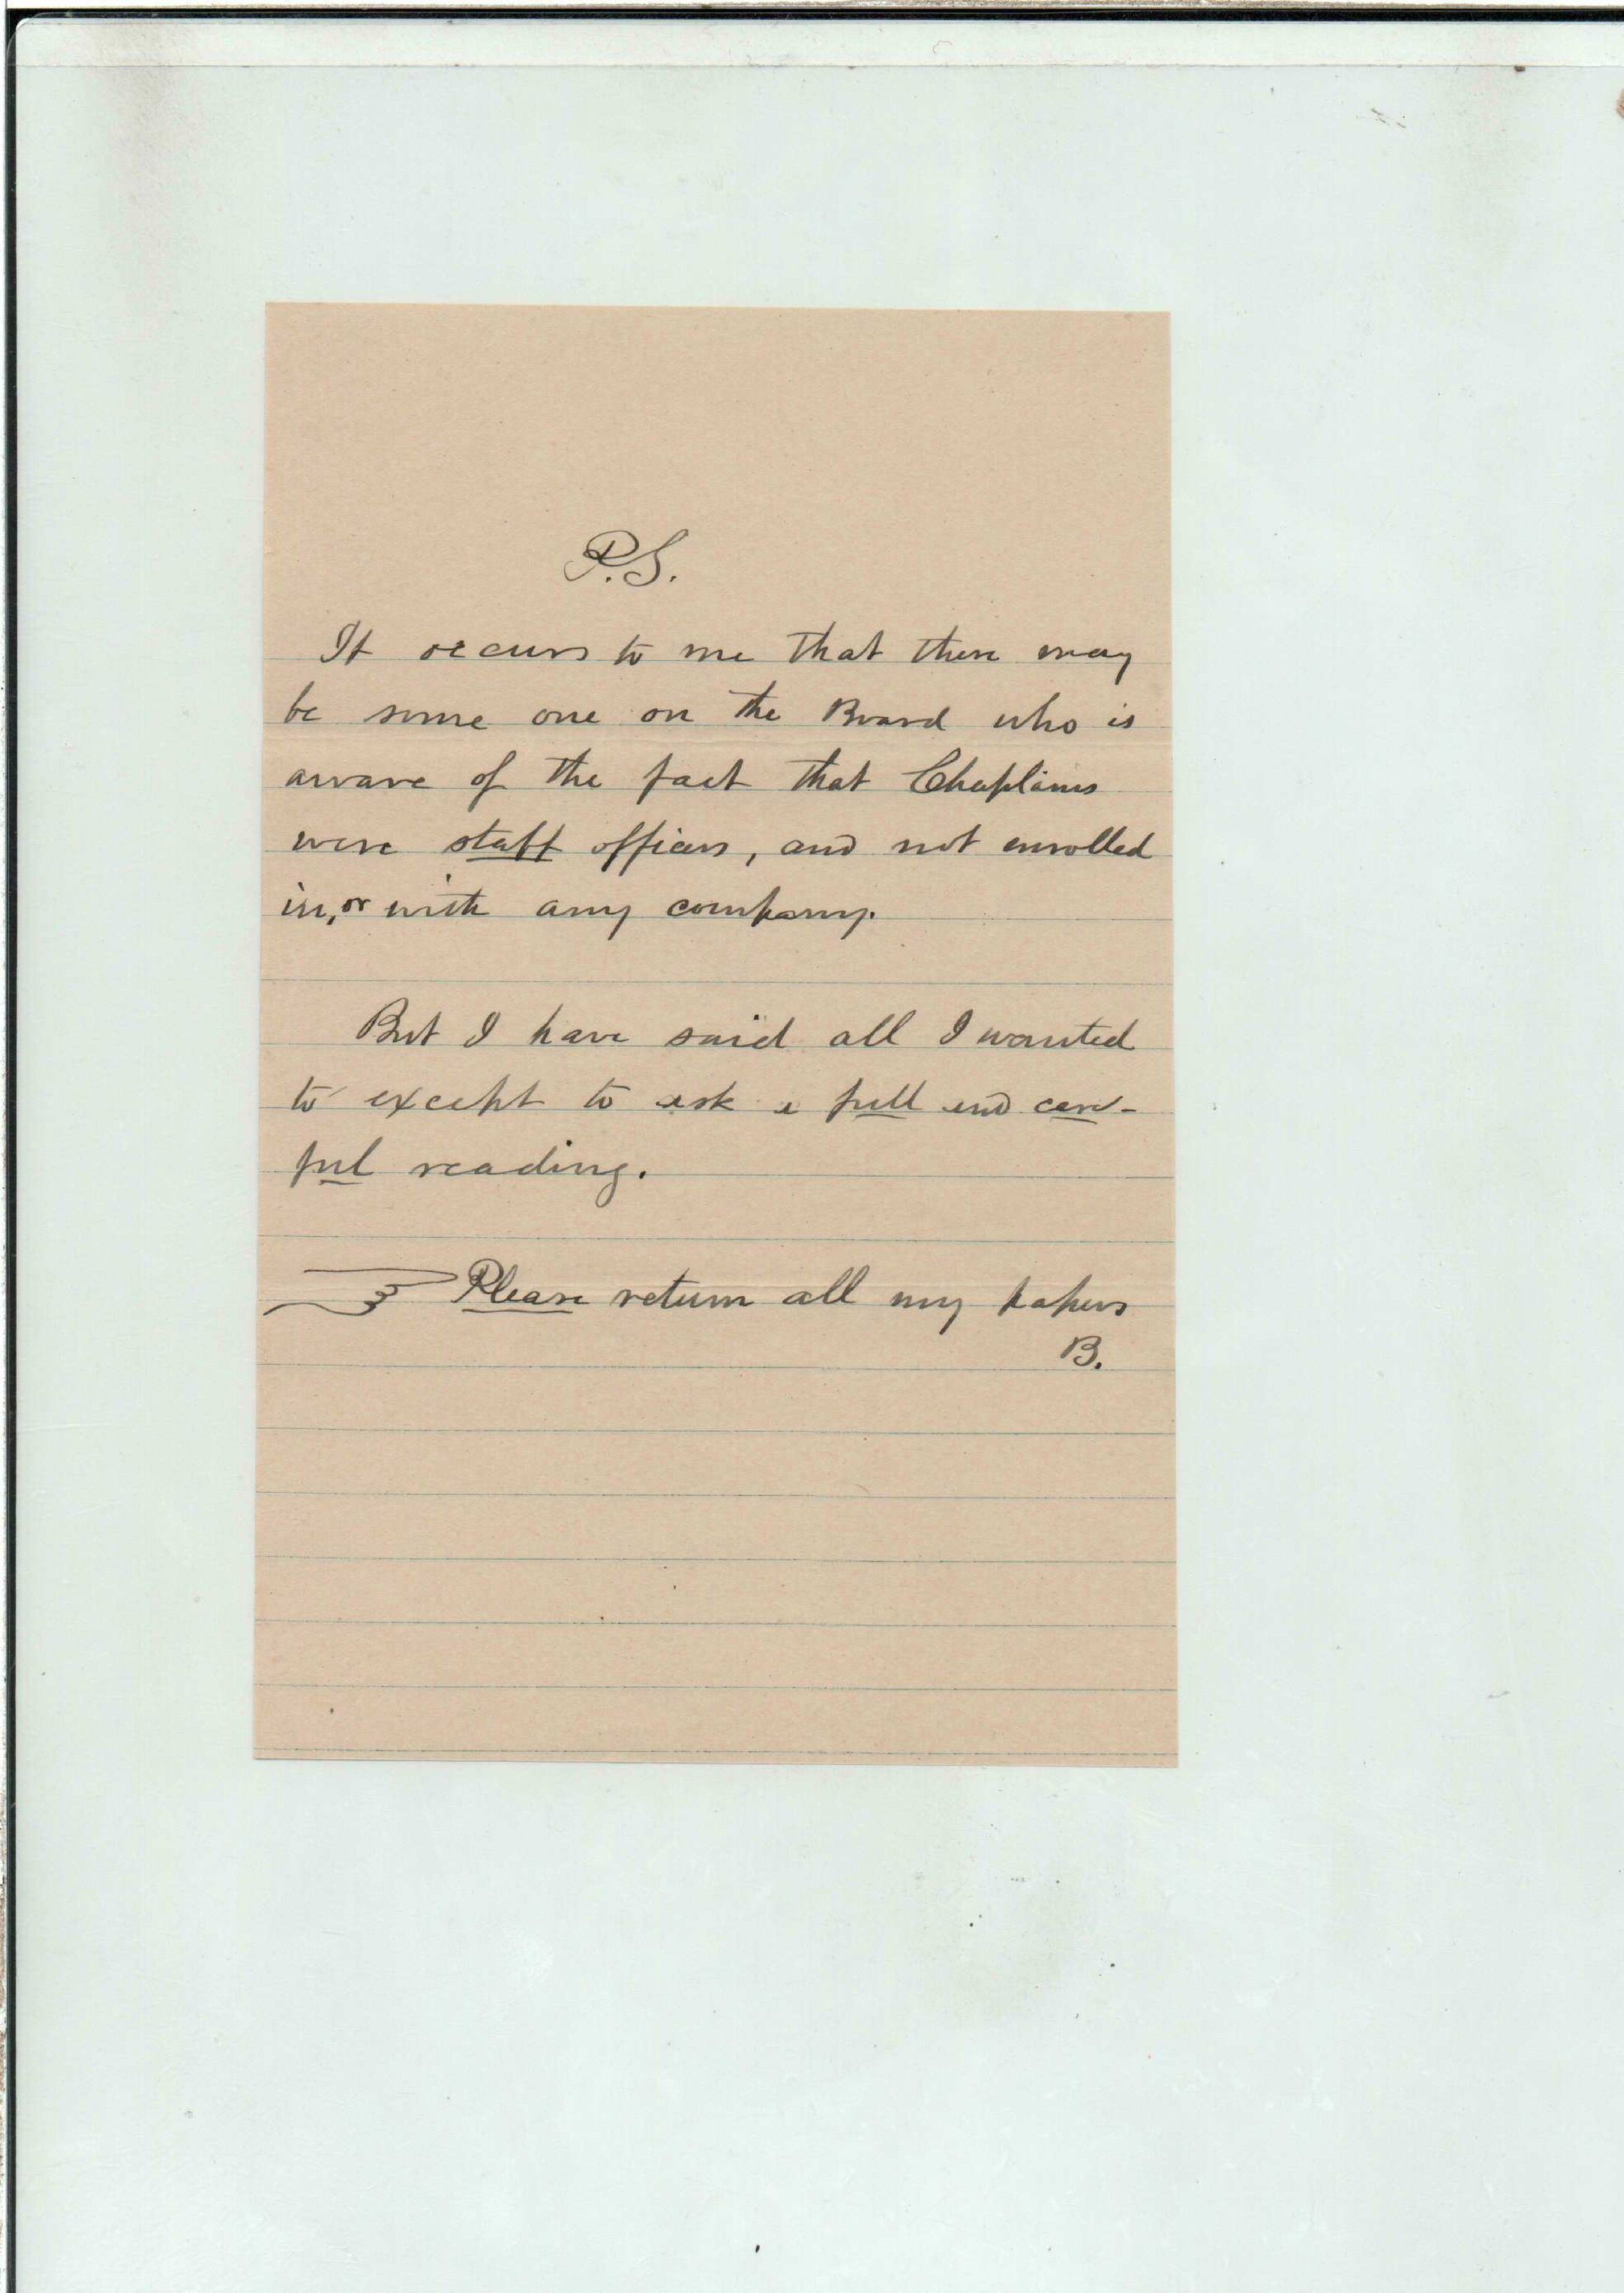 P.S.
It occurs to me that there may
be some one on the Board who is
aware of the fact that Chaplains
were staff officers, and not enrolled
in, or with any company.
But I have said all I wanted
to except to ask a full and care-
ful reading.
Please return all my papers
B.